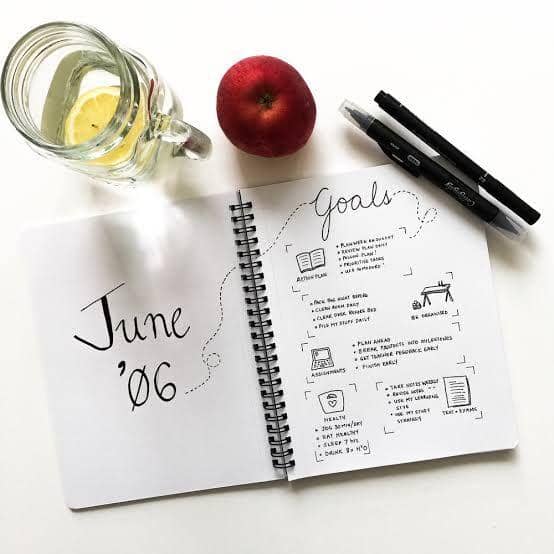 June
'06
Goals
• PLAN WEEK ON SUNDAY
• REVIEW PLAN DAILY
• FOLLOW PLAN!
• PRIORITISE TASKS
• USE
ACTION PLAN
• PACK BAG NIGHT BEFORE
• CLEAN ROOM DAILY
• CLEAR DESK BEFORE BED
• FILE MY STUFF DAILY
BE ORGANISED
• PLAN AHEAD
• BREAK PROJECTS INTO MILESTONES
• GET TEACHER FEEDBACK EARLY
• FINISH EARLY
ASSIGNMENTS
HEALTH
• JOG 30MIN/DAY
• EAT HEALTHY
• SLEEP 7 hrs
• DRINK 8x H²O
• TAKE NOTES WEEKLY
• REVISE NOTES
• USE MY LEARNING
STYLE
• USE MY STUDY
STRATEGY
TEST + EXAMS